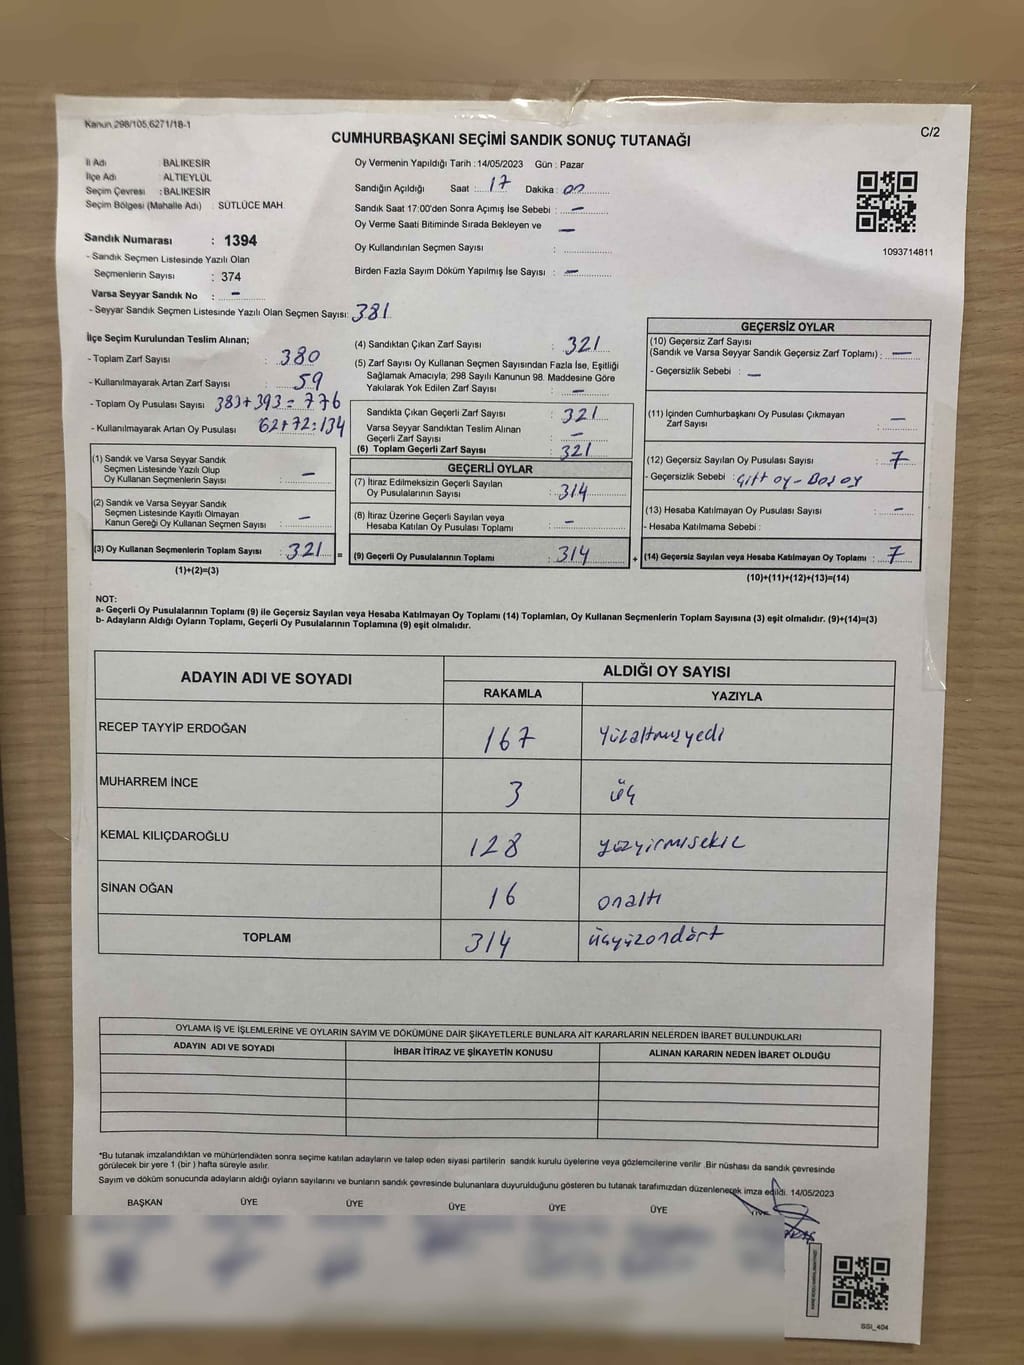 Kanun 298/105,6271/18-1
C/2
CUMHURBAŞKANI SEÇİMİ SANDIK SONUÇ TUTANAĞI
İl Adı : BALIKESİR
İlçe Adı : ALTIEYLÜL
Seçim Çevresi : BALIKESİR
Seçim Bölgesi (Mahalle Adı) : SÜTLÜCE MAH.
Sandık Numarası : 1394
- Sandık Seçmen Listesinde Yazılı Olan
Seçmenlerin Sayısı : 374
Varsa Seyyar Sandık No : –
- Seyyar Sandık Seçmen Listesinde Yazılı Olan Seçmen Sayısı: 381
Oy Vermenin Yapıldığı Tarih : 14/05/2023 Gün : Pazar
Sandığın Açıldığı Saat : 17 Dakika : 00
Sandık Saat 17:00'den Sonra Açımış İse Sebebi : –
Oy Verme Saati Bitiminde Sırada Bekleyen ve –
Oy Kullandırılan Seçmen Sayısı :
Birden Fazla Sayım Döküm Yapılmış İse Sayısı : –
1093714811
İlçe Seçim Kurulundan Teslim Alınan;
- Toplam Zarf Sayısı : 380
- Kullanılmayarak Artan Zarf Sayısı : 59
- Toplam Oy Pusulası Sayısı 383+393=776
- Kullanılmayarak Artan Oy Pusulası 62+72=134
(1) Sandık ve Varsa Seyyar Sandık
Seçmen Listesinde Yazılı Olup
Oy Kullanan Seçmenlerin Sayısı : –
(2) Sandık ve Varsa Seyyar Sandık
Seçmen Listesinde Kayıtlı Olmayan
Kanun Gereği Oy Kullanan Seçmen Sayısı : –
(3) Oy Kullanan Seçmenlerin Toplam Sayısı : 321 =
(1)+(2)=(3)
(4) Sandıktan Çıkan Zarf Sayısı : 321
(5) Zarf Sayısı Oy Kullanan Seçmen Sayısından Fazla İse, Eşitliği
Sağlamak Amacıyla; 298 Sayılı Kanunun 98. Maddesine Göre
Yakılarak Yok Edilen Zarf Sayısı : –
Sandıkta Çıkan Geçerli Zarf Sayısı : 321
Varsa Seyyar Sandıktan Teslim Alınan
Geçerli Zarf Sayısı : –
(6) Toplam Geçerli Zarf Sayısı : 321
GEÇERLİ OYLAR
(7) İtiraz Edilmeksizin Geçerli Sayılan
Oy Pusulalarının Sayısı : 314
(8) İtiraz Üzerine Geçerli Sayılan veya
Hesaba Katılan Oy Pusulası Toplamı : –
(9) Geçerli Oy Pusulalarının Toplamı : 314 +
GEÇERSİZ OYLAR
(10) Geçersiz Zarf Sayısı
(Sandık ve Varsa Seyyar Sandık Geçersiz Zarf Toplamı) : –
- Geçersizlik Sebebi : –
(11) İçinden Cumhurbaşkanı Oy Pusulası Çıkmayan
Zarf Sayısı : –
(12) Geçersiz Sayılan Oy Pusulası Sayısı : 7
- Geçersizlik Sebebi : Çift oy - Boş oy
(13) Hesaba Katılmayan Oy Pusulası Sayısı : –
- Hesaba Katılmama Sebebi :
(14) Geçersiz Sayılan veya Hesaba Katılmayan Oy Toplamı : 7
(10)+(11)+(12)+(13)=(14)
NOT:
a- Geçerli Oy Pusulalarının Toplamı (9) ile Geçersiz Sayılan veya Hesaba Katılmayan Oy Toplamı (14) Toplamları, Oy Kullanan Seçmenlerin Toplam Sayısına (3) eşit olmalıdır. (9)+(14)=(3)
b- Adayların Aldığı Oyların Toplamı, Geçerli Oy Pusulalarının Toplamına (9) eşit olmalıdır.
ADAYIN ADI VE SOYADI ALDIĞI OY SAYISI
RAKAMLA YAZIYLA
RECEP TAYYİP ERDOĞAN 167 yüzaltmışyedi
MUHARREM İNCE 3 üç
KEMAL KILIÇDAROĞLU 128 yüzyirmisekiz
SİNAN OĞAN 16 onaltı
TOPLAM 314 üçyüzondört
OYLAMA İŞ VE İŞLEMLERİNE VE OYLARIN SAYIM VE DÖKÜMÜNE DAİR ŞİKAYETLERLE BUNLARA AİT KARARLARIN NELERDEN İBARET BULUNDUKLARI
ADAYIN ADI VE SOYADI İHBAR İTİRAZ VE ŞİKAYETİN KONUSU ALINAN KARARIN NEDEN İBARET OLDUĞU
*Bu tutanak imzalandıktan ve mühürlendikten sonra seçime katılan adayların ve talep eden siyasi partilerin sandık kurulu üyelerine veya gözlemcilerine verilir .Bir nüshası da sandık çevresinde
görülecek bir yere 1 (bir ) hafta süreyle asılır.
Sayım ve döküm sonucunda adayların aldığı oyların sayılarını ve bunların sandık çevresinde bulunanlara duyurulduğunu gösteren bu tutanak tarafımızdan düzenlenecek imza edildi. 14/05/2023
BAŞKAN ÜYE ÜYE ÜYE ÜYE ÜYE ÜYE
SSI_404